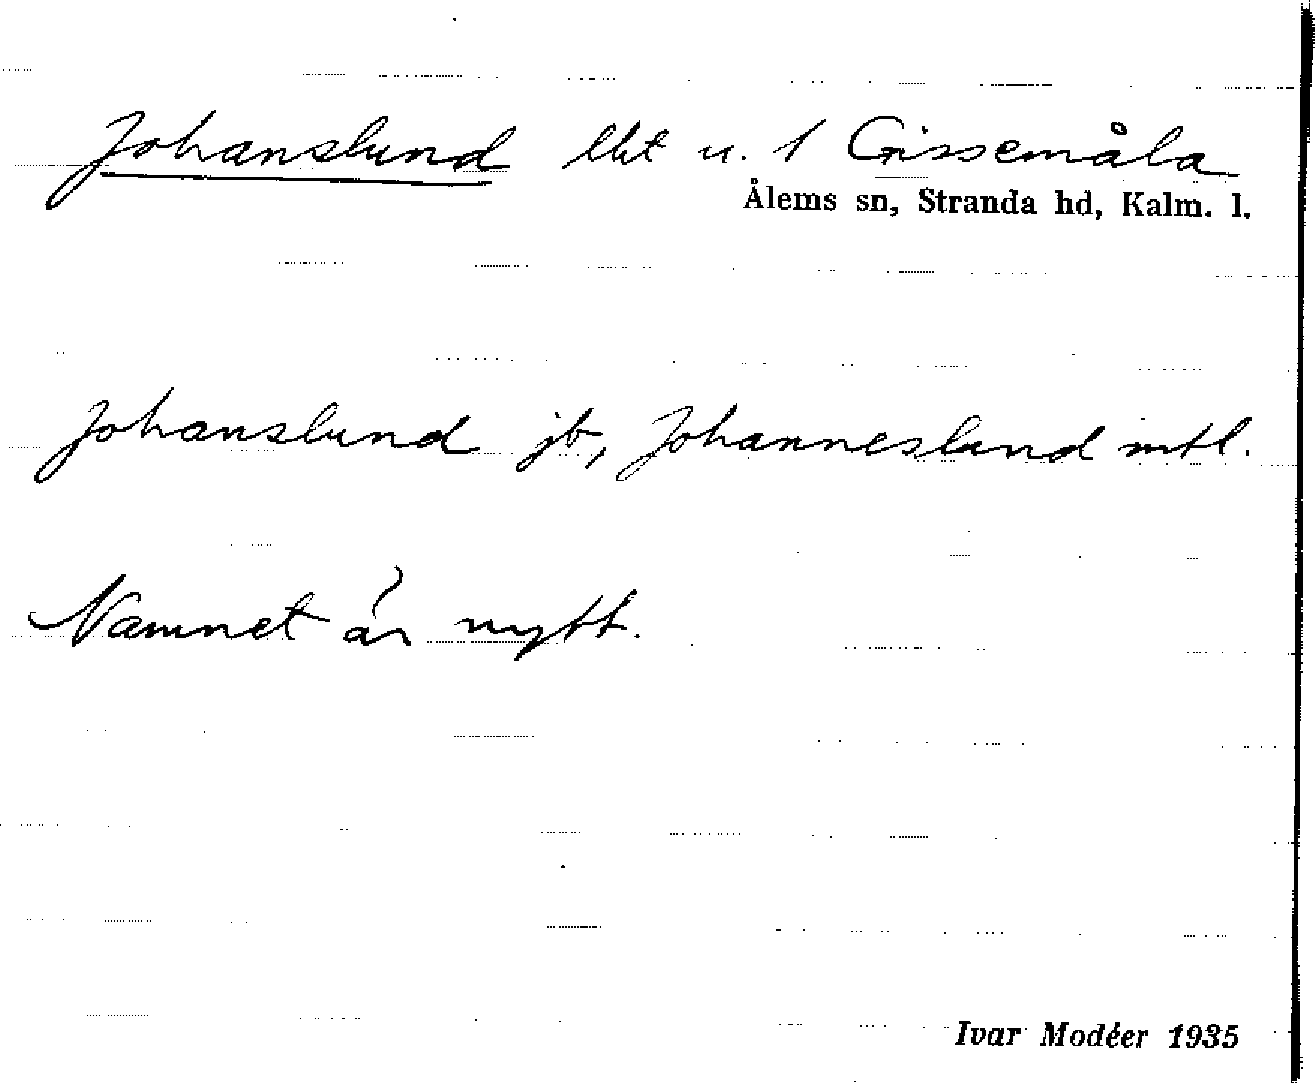 Johanslund lht u. 1 Gissemåla
Ålems sn, Stranda hd, Kalm. l.
Johanslund jb, Johanneslund mtl.
Namnet är nytt.
Ivar Modéer 1935